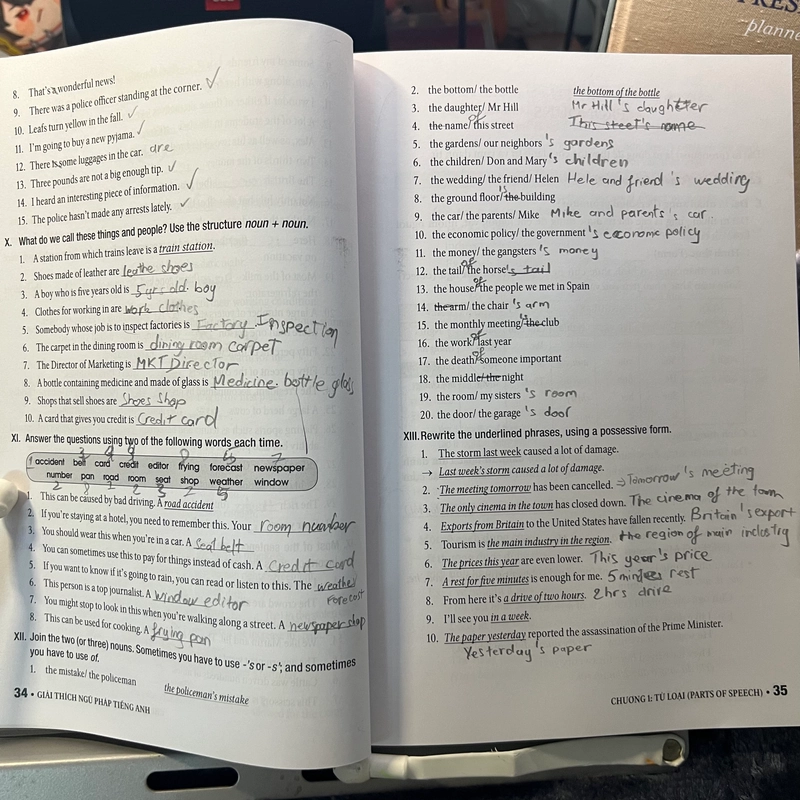 8. That's a wonderful news!
9. There was a police officer standing at the corner. ✓
10. Leafs turn yellow in the fall. ✓
11. I'm going to buy a new pyjama. ✓
12. There is some luggages in the car. are
13. Three pounds are not a big enough tip. ✓
14. I heard an interesting piece of information. ✓
15. The police hasn't made any arrests lately. ✓
X. What do we call these things and people? Use the structure noun + noun.
1. A station from which trains leave is a train station.
2. Shoes made of leather are leathe shoes
3. A boy who is five years old is 5 yrs old. boy
4. Clothes for working in are work clothes
5. Somebody whose job is to inspect factories is Factory. Inspection
6. The carpet in the dining room is dining room carpet
7. The Director of Marketing is MKT Director
8. A bottle containing medicine and made of glass is Medicine. bottle glass
9. Shops that sell shoes are Shoes Shop
10. A card that gives you credit is Credit card
XI. Answer the questions using two of the following words each time.
accident belt card credit editor frying forecast newspaper
number pan road room seat shop weather window
1. This can be caused by bad driving. A road accident
2. If you're staying at a hotel, you need to remember this. Your room number
3. You should wear this when you're in a car. A seat belt
4. You can sometimes use this to pay for things instead of cash. A credit card
5. If you want to know if it's going to rain, you can read or listen to this. The weather forecast
6. This person is a top journalist. A window editor
7. You might stop to look in this when you're walking along a street. A newspaper shop
8. This can be used for cooking. A frying pan
XII. Join the two (or three) nouns. Sometimes you have to use -'s or -s'; and sometimes
you have to use of.
1. the mistake/ the policeman the policeman's mistake
34 • GIẢI THÍCH NGỮ PHÁP TIẾNG ANH
PRES
planne
2. the bottom/ the bottle the bottom of the bottle
3. the daughter/ Mr Hill Mr Hill's daughter
4. the name/ of this street This steet's name
5. the gardens/ our neighbors 's gardens
6. the children/ Don and Mary 's children
7. the wedding/ the friend/ Helen Hele and friend's wedding
8. the ground floor/ 's the building
9. the car/ the parents/ Mike Mike and parents's car.
10. the economic policy/ the government 's econome policy
11. the money/ the gangsters 's money
12. the tail/ of the horse 's tail
13. the house/ of the people we met in Spain
14. the arm/ the chair 's arm
15. the monthly meeting/ 's the club
16. the work/ of last year
17. the death/ of someone important
18. the middle/ the night
19. the room/ my sisters 's room
20. the door/ the garage 's door
XIII. Rewrite the underlined phrases, using a possessive form.
1. The storm last week caused a lot of damage.
→ Last week's storm caused a lot of damage.
2. The meeting tomorrow has been cancelled. → Tomorrow's meeting
3. The only cinema in the town has closed down. The cinema of the town
4. Exports from Britain to the United States have fallen recently. Britain's export
5. Tourism is the main industry in the region. the region of main industry
6. The prices this year are even lower. This year's price
7. A rest for five minutes is enough for me. 5 minutes rest
8. From here it's a drive of two hours. 2hrs drive
9. I'll see you in a week.
10. The paper yesterday reported the assassination of the Prime Minister.
Yesterday's paper
CHƯƠNG I: TỪ LOẠI (PARTS OF SPEECH) • 35